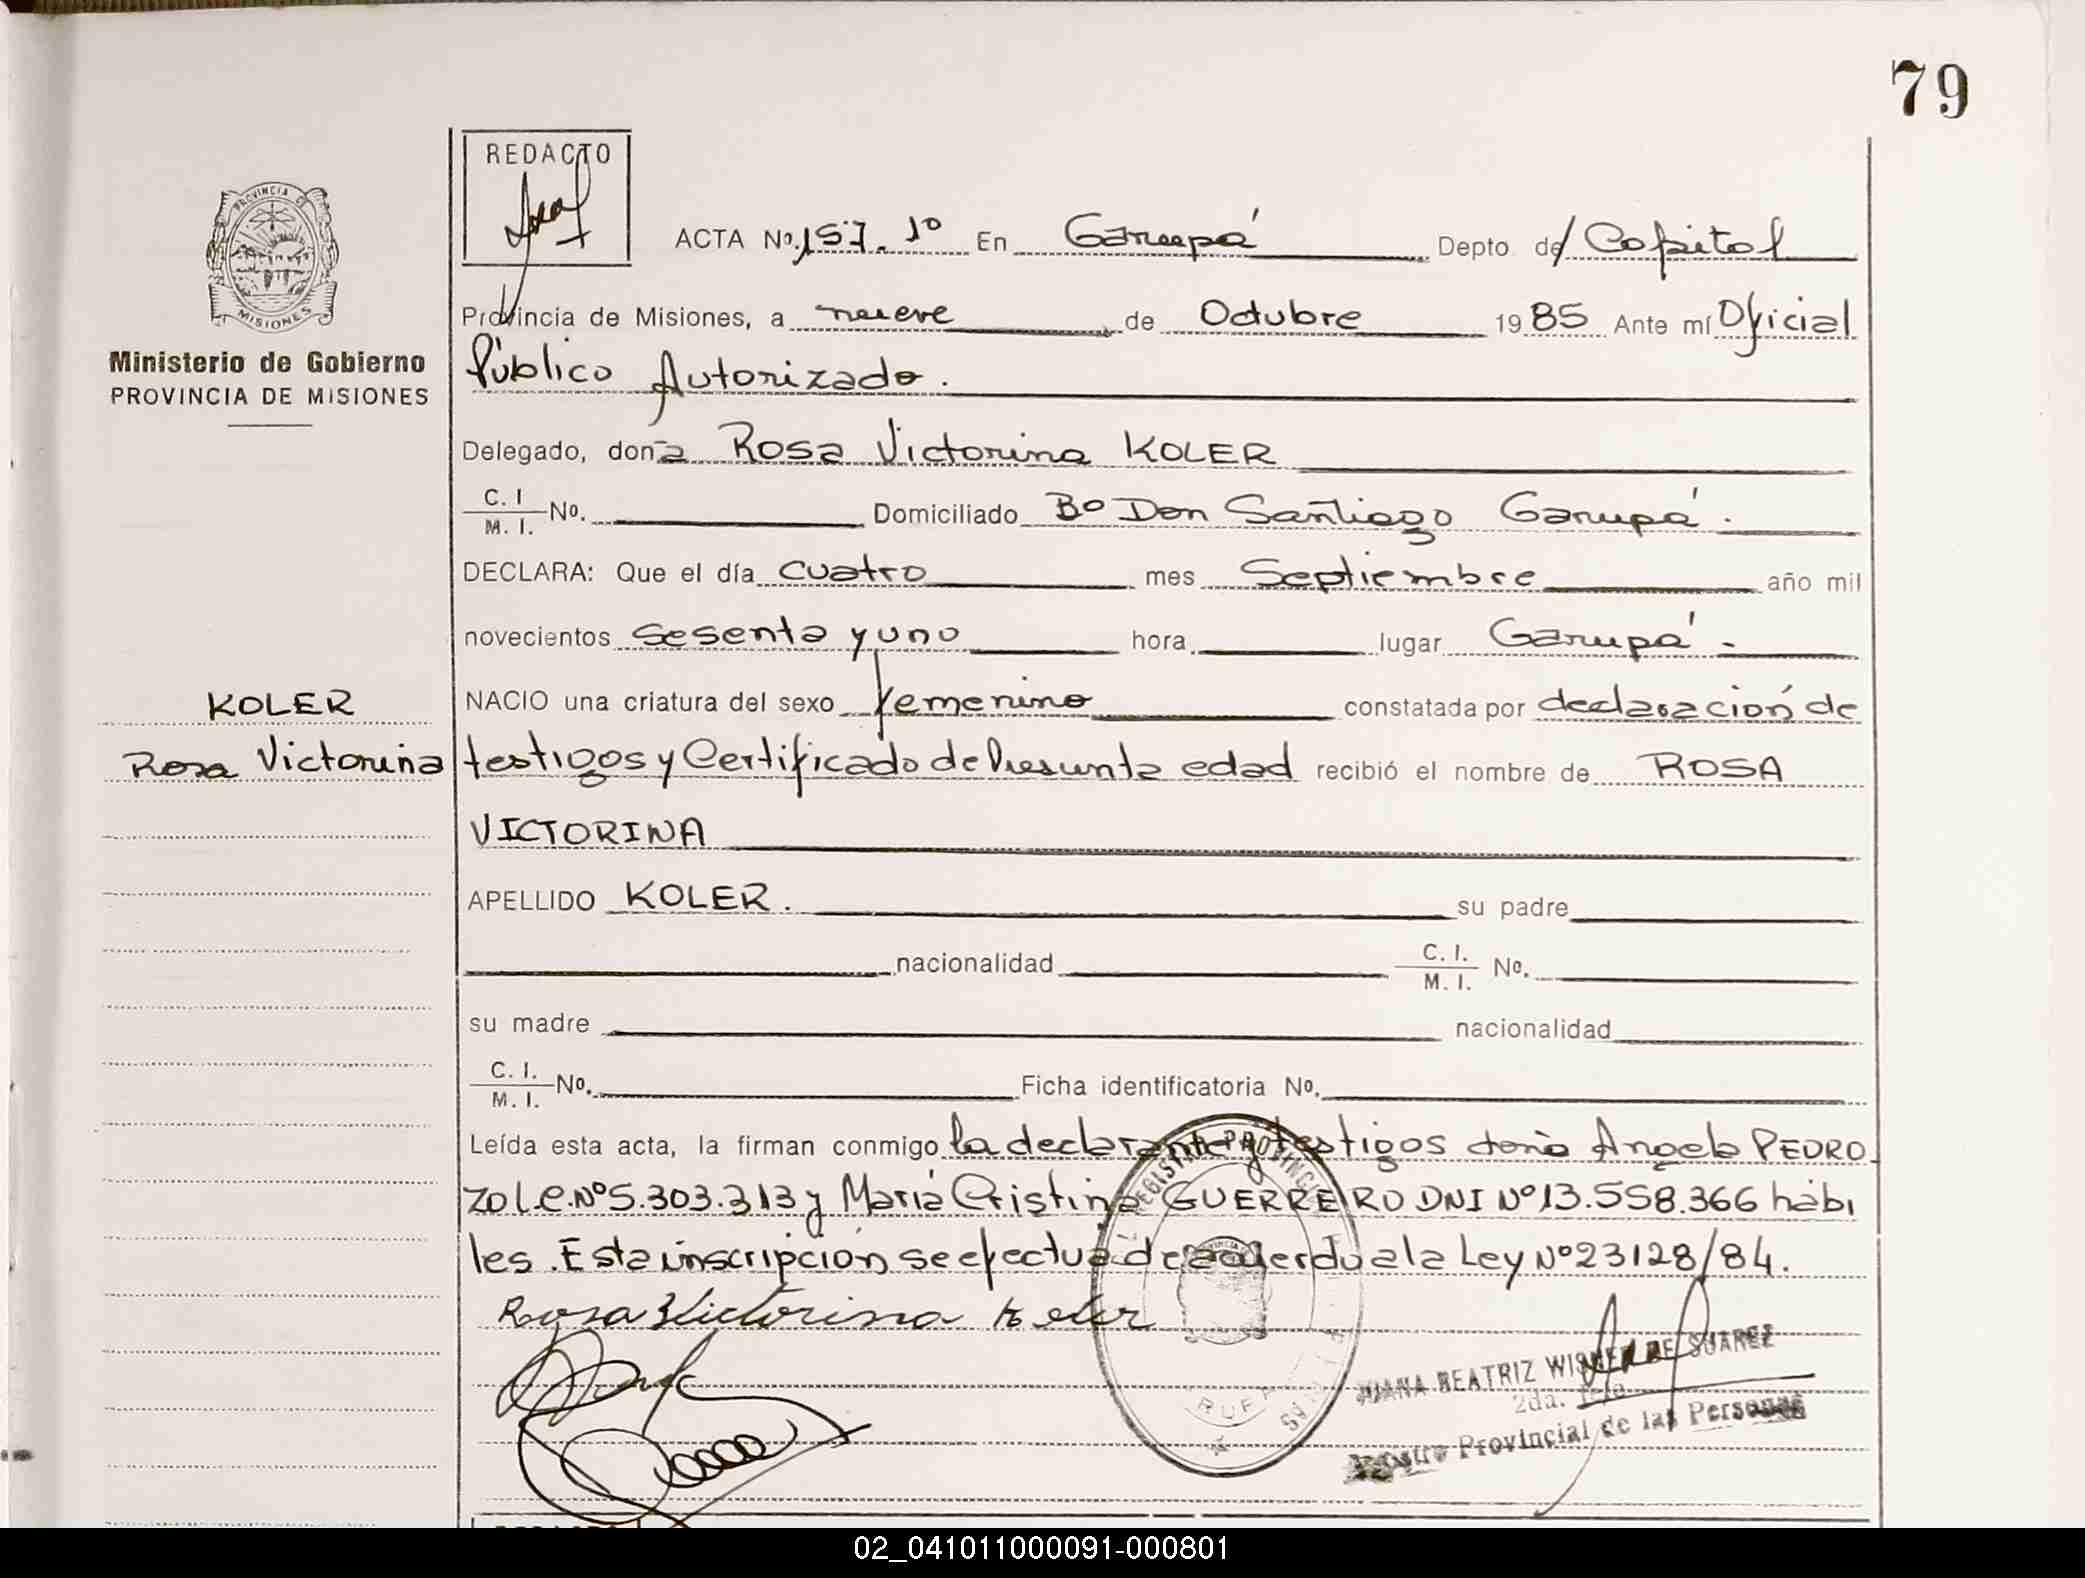 79
REDACTO
ACTA Nº. 157. 1º En Garupá Depto. de/ Capital
Provincia de Misiones, a nueve de Octubre 1985 Ante mí Oficial
Público Autorizado.
Delegado, don̄a Rosa Victorina KOLER
C. I. / M. I. Nº. Domiciliado Bº Don Santiago Garupá.
DECLARA: Que el día cuatro mes Septiembre año mil
novecientos sesenta y uno hora lugar Garupá -
NACIO una criatura del sexo femenino constatada por declaración de
testigos y Certificado de Presunta edad recibió el nombre de ROSA
VICTORINA
APELLIDO KOLER. su padre
nacionalidad C. I. / M. I. Nº.
su madre nacionalidad
C. I. / M. I. Nº. Ficha identificatoria Nº.
Leída esta acta, la firman conmigo la declarante y testigos doña Angela PEDRO
ZO L.C. Nº 5.303.313 y María Cristina GUERRERO DNI Nº 13.558.366 hábi
les. Esta inscripción se efectua de acuerdo a la Ley Nº 23128/84.
Rosa Victorina Koler
PROVINCIA DE
MISIONES
Ministerio de Gobierno
PROVINCIA DE MISIONES
KOLER
Rosa Victorina
REGISTRO PROVINCIAL
JUANA BEATRIZ DE SUAREZ
2da. Jefe
Registro Provincial de las Personas
02_041011000091-000801